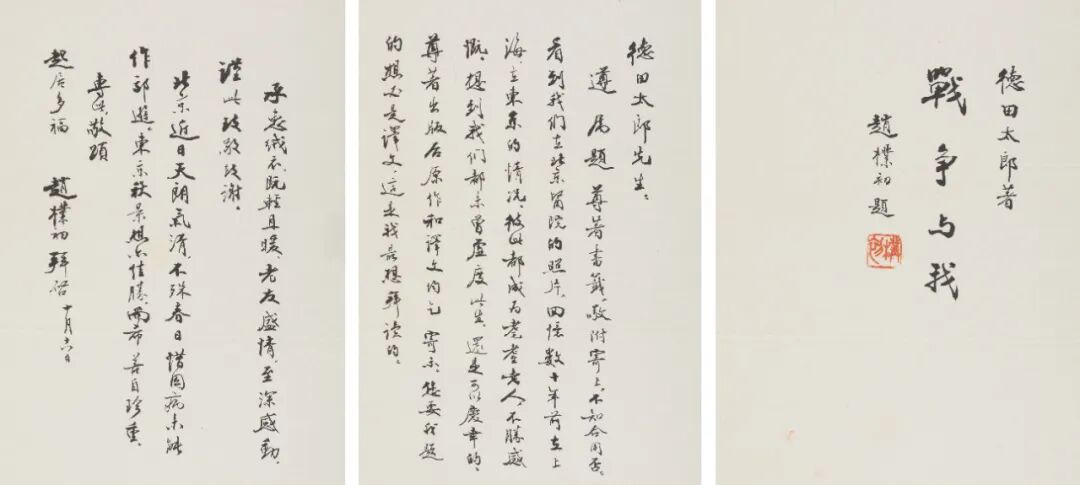 德田太郎著
戰争与我
趙樸初題
樸初
德田太郎先生：
遵 属題 尊著書籤，敬附寄上，不知合用否。
看到我们在北京醫院的照片，回憶数十年前在上
海、在東京的情况，彼此都成为耄耋老人，不勝感
慨。想到我们都未曾虚度此生，還是可以慶幸的。
尊著出版后原作和譯文均乞 寄示，您要我題
的想必是譯文，这是我最想拜读的。
承惠绒衣，既輕且暖，老友盛情，至深感動，
謹此致敬致謝。
北京近日天朗氣清，不殊春日，惜因病未能
作郊遊。東京秋景想亦佳勝，尚希善自珍重。
專此，敬頌
起居多福 趙樸初拜啓 十月 日